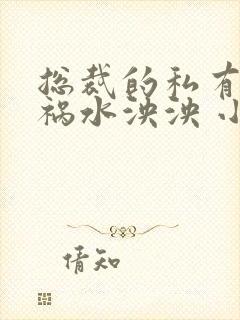 总裁的私有
祸水泱泱 小
倩知